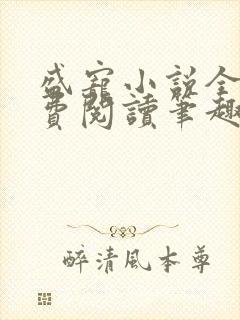 盛寵小說全
費閱讀筆趣
醉清風本尊